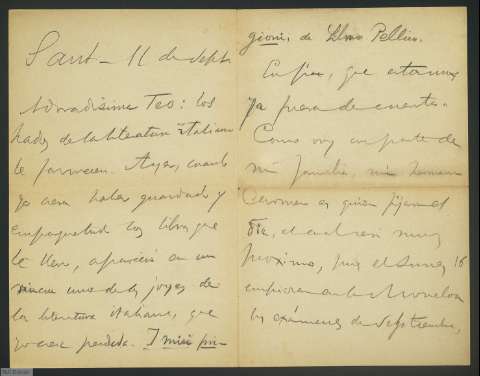 Sant - 11 de Sept.
Adoradísimo Teo: los
hados de la literatura italiana
te favorecen. Ayer, cuando
yo creía haber guardado y
empaquetado los libros que
te llevo, apareció en un
rincón una de las joyas de
la literatura italiana, que
yo creía perdida. I miei pri-
gioni, de Silvio Pellico.
En fin, que estamos
ya fuera de cuenta.
Como voy en parte de
mi familia, mi hermana
Carmen es quien fijará el
día, el cual será muy
próximo, pues el lunes 16
empiezan en la
los exámenes de Septiembre,